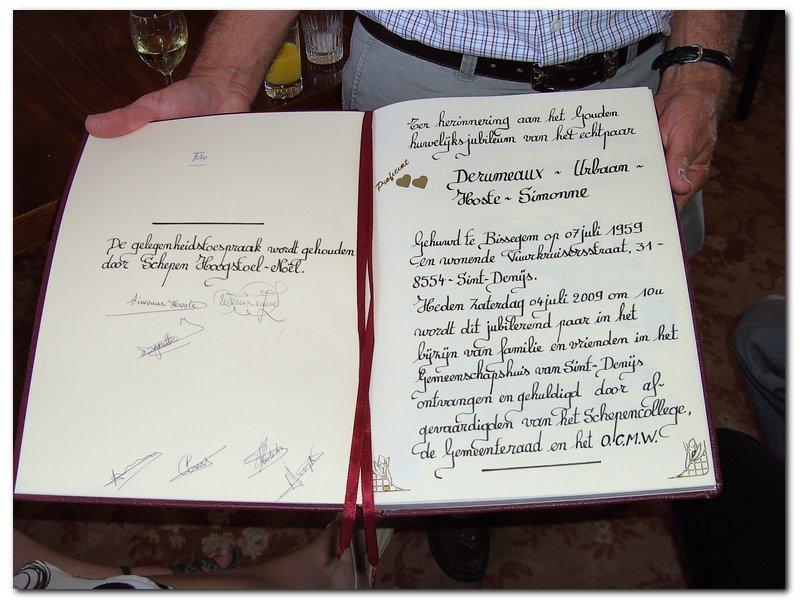 Foto
De gelegenheidstoespraak wordt gehouden
door Schepen Hoogstoel-Noël.
Simonne Hoste
Ter herinnering aan het Gouden
huwelijksjubileum van het echtpaar
Proficiat
Derumeaux - Urbaan -
Hoste - Simonne
Gehuwd te Bissegem op 07 juli 1959
en wonende Vuurkruisersstraat, 31 -
8554 - Sint-Denijs.
Heden Zaterdag 04 juli 2009 om 10u
wordt dit jubilerend paar in het
bijzijn van familie en vrienden in het
Gemeenschapshuis van Sint-Denijs
ontvangen en gehuldigd door af-
gevaardigden van het Schepencollege,
de Gemeenteraad en het O.C.M.W.